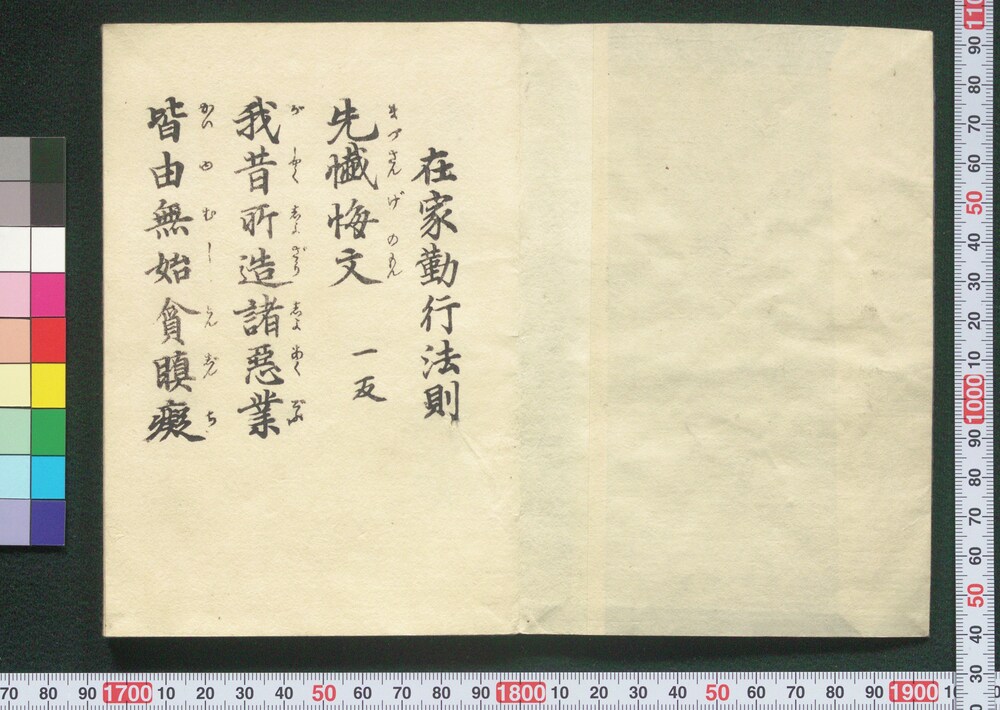 在家勤行法則
先懺悔文 一反
まづさんげのもん
我昔所造諸惡業
がしやくしよざうしよあくごふ
皆由無始貪瞋癡
かいゆむしとんじんち
70 80 90 1700 10 20 30 40 50 60 70 80 90 1800 10 20 30 40 50 60 70 80 90 1900
1100 90 80 70 60 50 40 30 20 10 1000 90 80 70 60 50 40 30